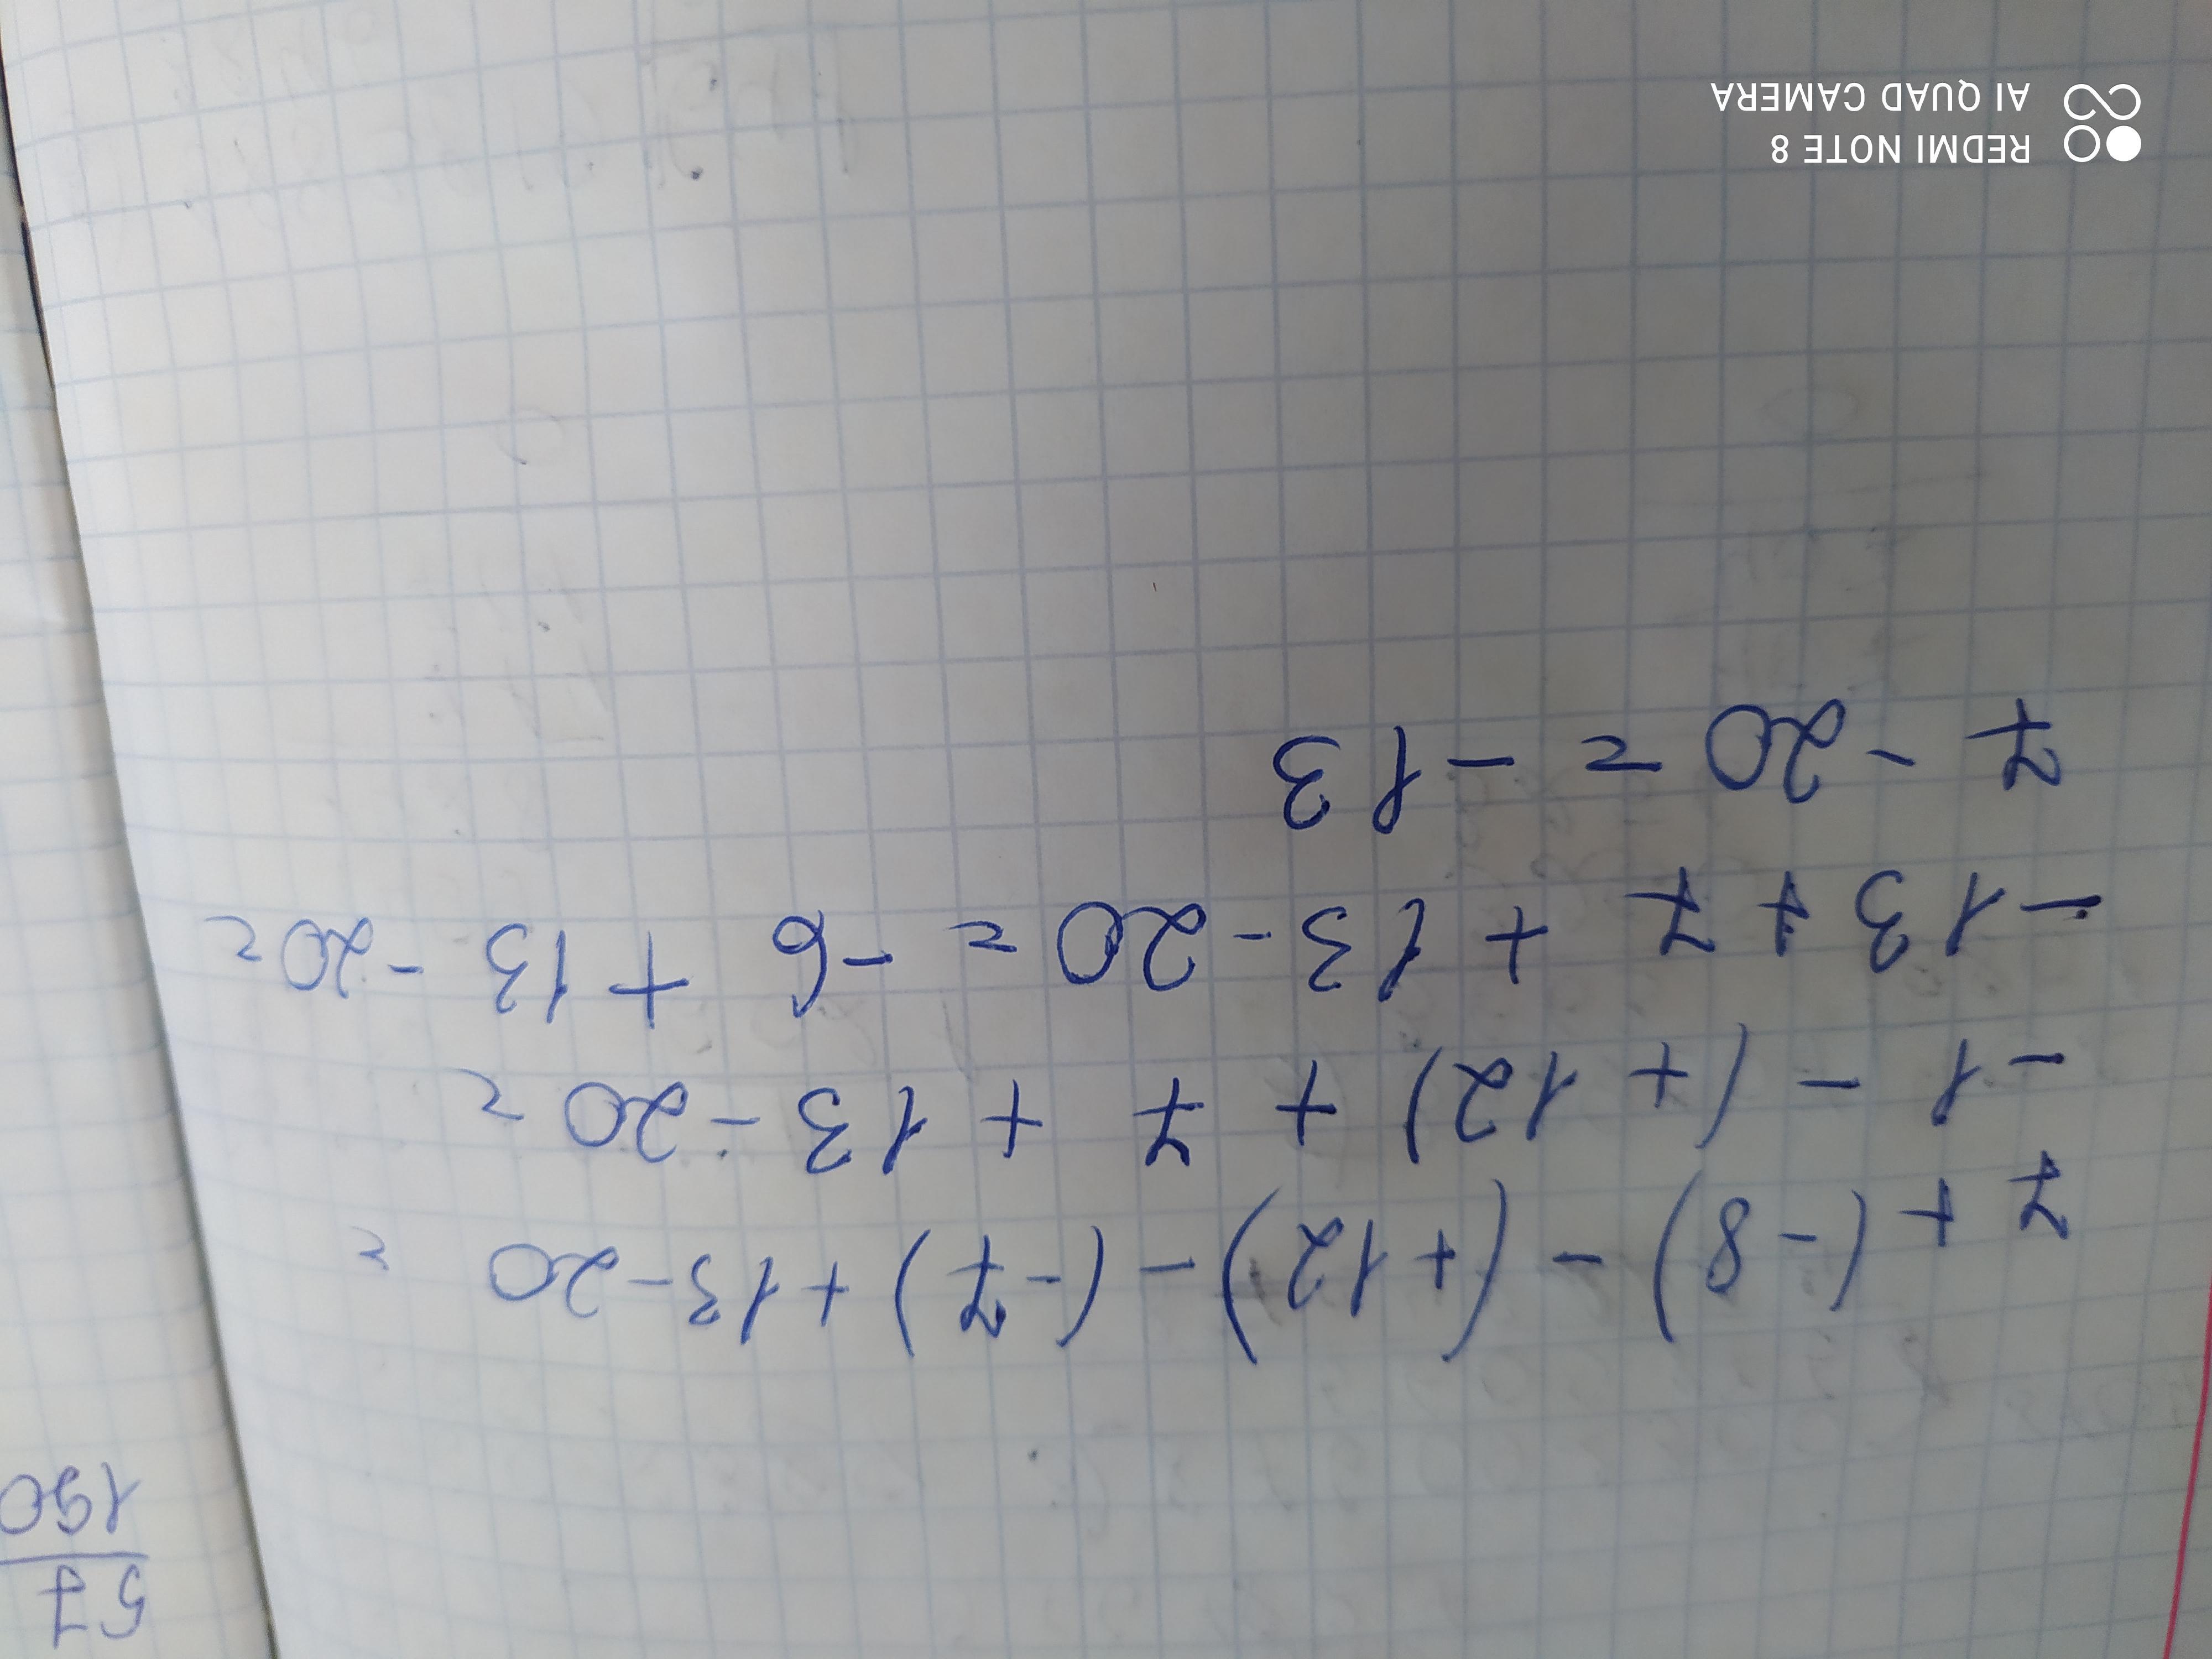 7 + (-8) - (+12) - (-7) + 13 - 20 =
-1 - (+12) + 7 + 13 - 20 =
-13 + 7 + 13 - 20 = -6 + 13 - 20 =
7 - 20 = -13
57
190
REDMI NOTE 8
AI QUAD CAMERA